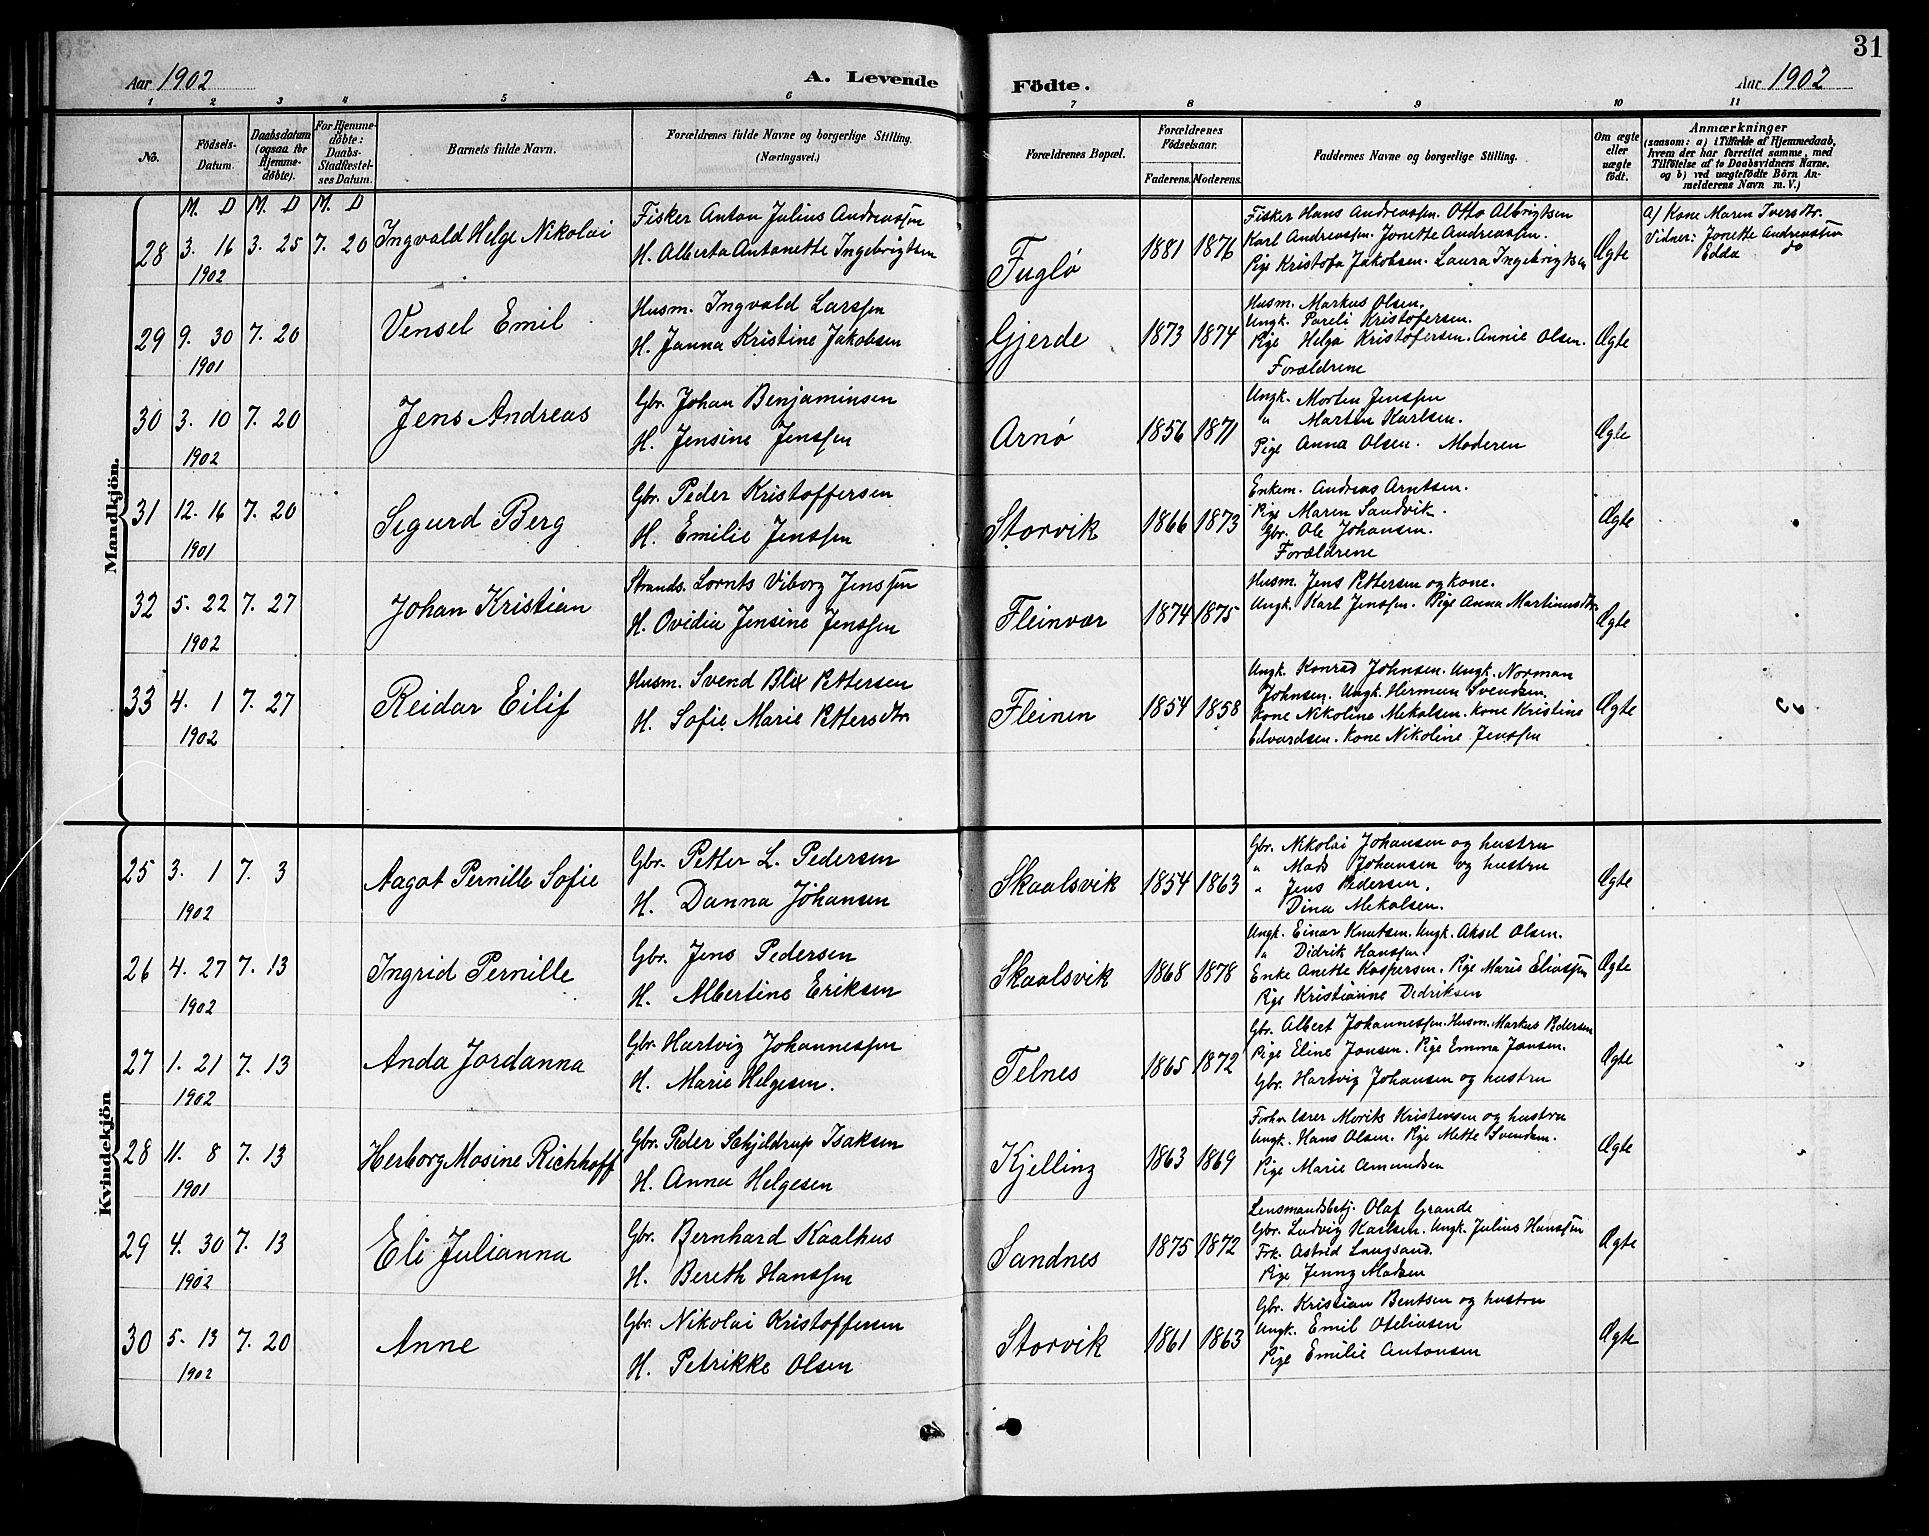 31
Aar 1902
A. Levende Födte.
Aar 1902
1 2 3 4 5 6 7 8 9 10 11
No.
Födsels-Datum.
Daabsdatum (ogsaa for Hjemmedöbte).
For Hjemmedöbte: Daabs-Stadfæstelses Datum.
Barnets fulde Navn.
Forældrenes fulde Navne og borgerlige Stilling.
(Næringsvei.)
Forældrenes Bopæl.
Forældrenes Födselsaar.
Faderens. Moderens.
Faddernes Navne og borgerlige Stilling.
Om ægte eller uægte födt.
Anmærkninger
(saasom: a) i Tilfælde af Hjemmedaab, hvem der har forrettet samme, med Tilföielse af to Daabsvidners Navne, og b) ved uægtefödte Börn Anmelderens Navn m. V.)
Mandkjön.
M. D M. D M. D
28 3. 16 1902 3. 25 7. 20 Ingvald Helge Nikolai
Fisker Anton Julius Andreassen
H. Alberta Antonette Ingebrigtsen
Fuglø 1881 1876
Fisker Hans Andreassen. Otto Albrigtsen
Karl Andreassen. Jonette Andreassen.
Pige Kristofa Jakobsen. Laura Ingebrigtsen
Ægte
a) Kone Maren Iversdtr.
Vidner: Jonette Andreassen
Edda do
29 9. 30 1901 7. 20 Vensel Emil
Husm. Ingvald Larssen
H. Janna Kristine Jakobsen
Gjerde 1873 1874
Husm. Markus Olsen.
Ungk. Pareli Kristofersen.
Pige Helga Kristofersen. Annie Olsen.
Forældrene
Ægte
30 3. 10 1902 7. 20 Jens Andreas
Gbr. Johan Benjaminsen
H. Jensine Jenssen
Arnø 1856 1871
Ungk. Morten Jenssen
" Martin Karlsen.
Pige Anna Olsen. Moderen
Ægte
31 12. 16 1901 7. 20 Sigurd Berg
Gbr. Peder Kristoffersen
H. Emilie Jenssen
Storvik 1866 1873
Enkem. Andreas Arntsen.
Pige Maren Sandvik.
Gbr. Ole Johansen.
Forældrene
Ægte
32 5. 22 1902 7. 27 Johan Kristian
Strands. Lornts Viborg Jenssen
H. Ovidia Jensine Jenssen
Fleinvær 1874 1875
Husm. Jens Pettersen og kone.
Ungk. Karl Jenssen. Pige Anna Martinusdtr
Ægte
33 4. 1 1902 7. 27 Reidar Eilif
Husm. Svend Blix Pettersen
H. Sofie Marie Pettersdtr
Fleinen 1854 1858
Ungk. Konrad Johnsen. Ungk. Norman
Johnsen. Ungk. Herman Svendsen.
Kone Nikoline Mekalsen. Kone Kristine
Edvardsen. Kone Nikoline Jenssen
Ægte
Kvindekjön
25 3. 1 1902 7. 3 Aagot Pernille Sofie
Gbr. Petter L. Pedersen
H. Danna Johansen
Skaalsvik 1854 1863
Gbr. Nikolai Johansen og hustru
" Mads Johansen og hustru
" Jens Pedersen.
Dina Mekalsen.
Ægte
26 4. 27 1902 7. 13 Ingrid Pernille
Gbr. Jens Pedersen
H. Albertine Eriksen
Skaalsvik 1868 1878
Ungk. Einar Knutsen. Ungk. Aksel Olsen.
" Didrik Hanssen.
Enke Anette Kaspersen. Pige Marie Eliassen
Pige Kristianne Dedriksen
Ægte
27 1. 21 1902 7. 13 Anda Jordanna
Gbr. Hartvig Johannessen
H. Marie Helgesen.
Telnes 1865 1872
Gbr. Albert Johannessen. Husm. Markus Pedersen
Pige Eline Jonsen. Pige Emma Jonsen.
Gbr. Hartvig Johansen og hustru
Ægte
28 11. 8 1901 7. 13 Herborg Mosine Richhoff
Gbr. Peder Schjeldrup Isaksen
H. Anna Helgesen
Kjelling 1863 1869
Forh. lærer Moriks Kristensen og hustru
Ungk. Hans Olsen. Pige Mette Svendsen.
Pige Marie Amundsen
Ægte
29 4. 30 1902 7. 13 Eli Julianna
Gbr. Bernhard Kaalhus
H. Bereth Hanssen
Sandnes 1875 1872
Lensmandsbetj. Olaf Grande
Gbr. Ludvig Karlsen. Ungk. Julius Hanssen
Frk. Astrid Langsand.
Pige Jenny Madsen
Ægte
30 5. 13 1902 7. 20 Anne
Gbr. Nikolai Kristoffersen
H. Petrikke Olsen
Storvik 1861 1863
Gbr. Kristian Bentsen og hustru
Ungk. Emil Oteliusen
Pige Emilie Antonsen
Ægte